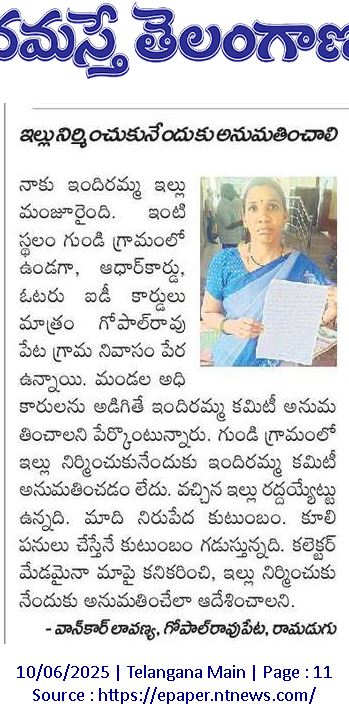 నమస్తే తెలంగాణ
ఇల్లు నిర్మించుకునేందుకు అనుమతించాలి
నాకు ఇందిరమ్మ ఇల్లు
మంజూరైంది. ఇంటి
స్థలం గుండి గ్రామంలో
ఉండగా, ఆధార్‌కార్డు,
ఓటరు ఐడీ కార్డులు
మాత్రం గోపాల్‌రావు
పేట గ్రామ నివాసం పేర
ఉన్నాయి. మండల అధి
కారులను అడిగితే ఇందిరమ్మ కమిటీ అనుమ
తించాలని పేర్కొంటున్నారు. గుండి గ్రామంలో
ఇల్లు నిర్మించుకునేందుకు ఇందిరమ్మ కమిటీ
అనుమతించడం లేదు. వచ్చిన ఇల్లు రద్దయ్యేట్టు
ఉన్నది. మాది నిరుపేద కుటుంబం. కూలి
పనులు చేస్తేనే కుటుంబం గడుస్తున్నది. కలెక్టర్
మేడమైనా మాపై కనికరించి, ఇల్లు నిర్మించుకు
నేందుకు అనుమతించేలా ఆదేశించాలని.
- వాన్‌కార్ లావణ్య, గోపాల్‌రావుపేట, రామడుగు
10/06/2025 | Telangana Main | Page : 11
Source : https://epaper.ntnews.com/